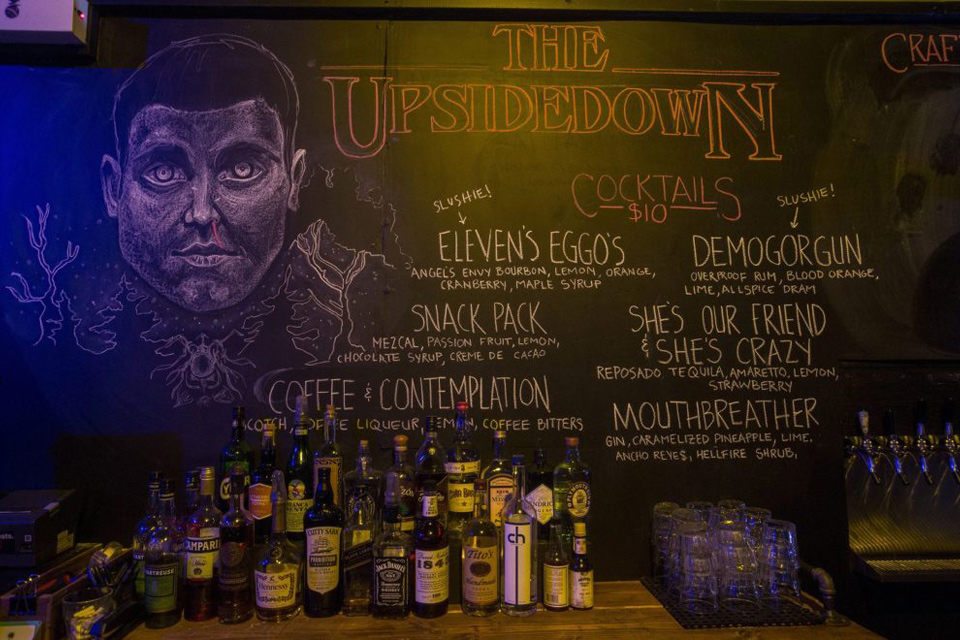 THE
UPSIDEDOWN
CRAF
COCKTAILS
$10
SLUSHIE!
ELEVEN'S EGGO'S
ANGEL'S ENVY BOURBON, LEMON, ORANGE,
CRANBERRY, MAPLE SYRUP
SNACK PACK
MEZCAL, PASSION FRUIT, LEMON,
CHOCOLATE SYRUP, CREME DE CACAO
COFFEE & CONTEMPLATION
COTCH, COFFEE LIQUEUR, LEMON, COFFEE BITTERS
SLUSHIE!
DEMOGORGUN
OVERPROOF RUM, BLOOD ORANGE,
LIME, ALLSPICE DRAM
SHE'S OUR FRIEND
& SHE'S CRAZY
REPOSADO TEQUILA, AMARETTO, LEMON,
STRAWBERRY
MOUTHBREATHER
GIN, CARAMELIZED PINEAPPLE, LIME,
ANCHO REYES, HELLFIRE SHRUB,
CAMPARI
Hennessy
CUTTY SARK
PROHIBITION
JACK DANIEL'S
184
Tito's
Handmade
ch